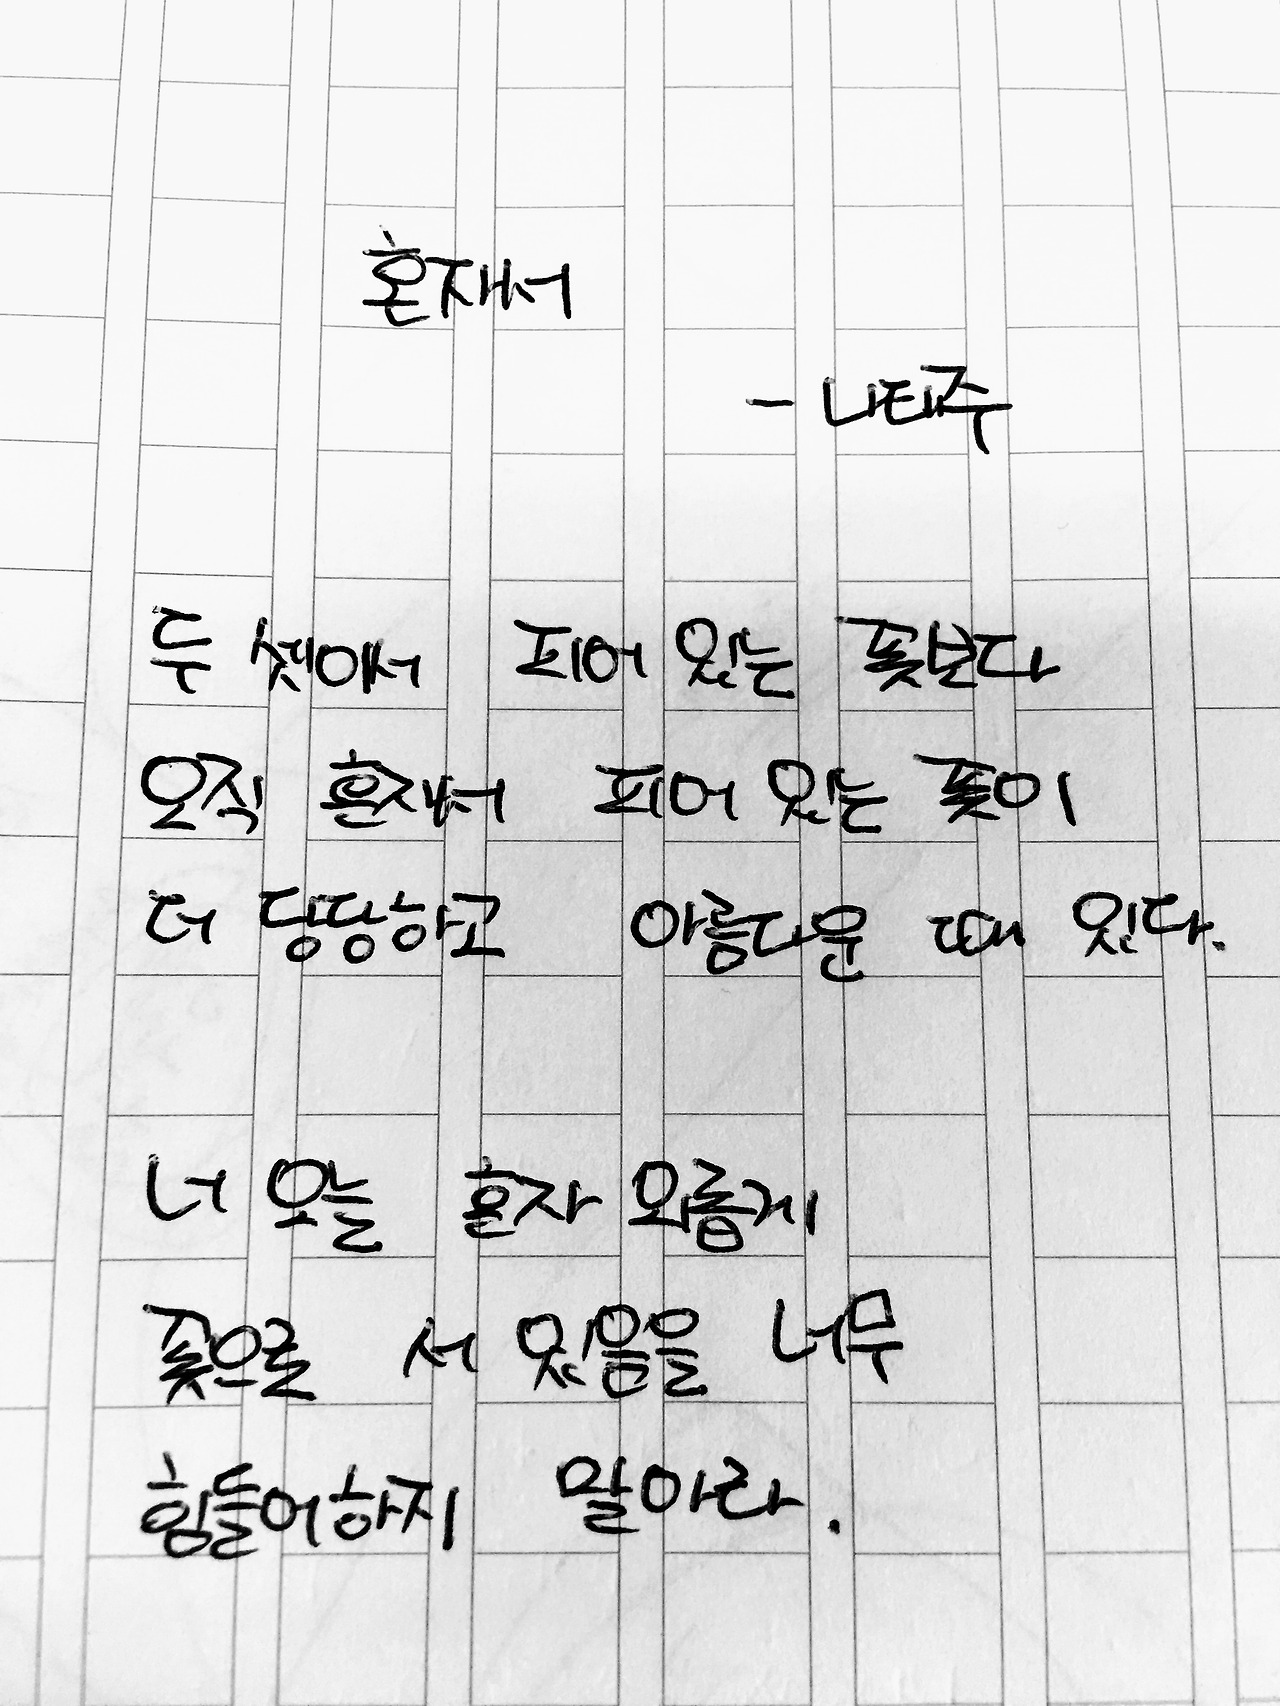 혼자서
- 나태주
두 셋에서 피어 있는 꽃보다
오직 혼자서 피어 있는 꽃이
더 당당하고 아름다운 때 있다.
너 오늘 혼자 외롭게
꽃으로 서 있음을 너무
힘들어하지 말아라.